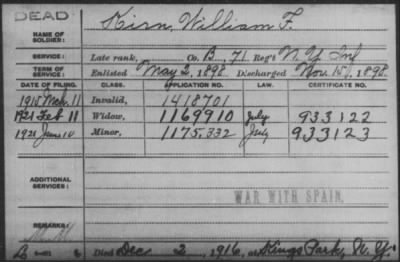 DEAD
NAME OF SOLDIER: Kirn, William F.
SERVICE: Late rank, Co. B, 71 Reg't N.Y. Inf
TERM OF SERVICE: Enlisted May 2, 1898. Discharged Nov. 15, 1898.
DATE OF FILING. CLASS. APPLICATION NO. LAW. CERTIFICATE NO.
1915 Mch. 11 Invalid, 1418701
1921 Feb 11 Widow, 1169910 July 933122
1921 June 10 Minor, 1175,332 July 933123
ADDITIONAL SERVICES:
WAR WITH SPAIN.
REMARKS:
Died Dec 2, 1916, at Kings Park, N.Y.